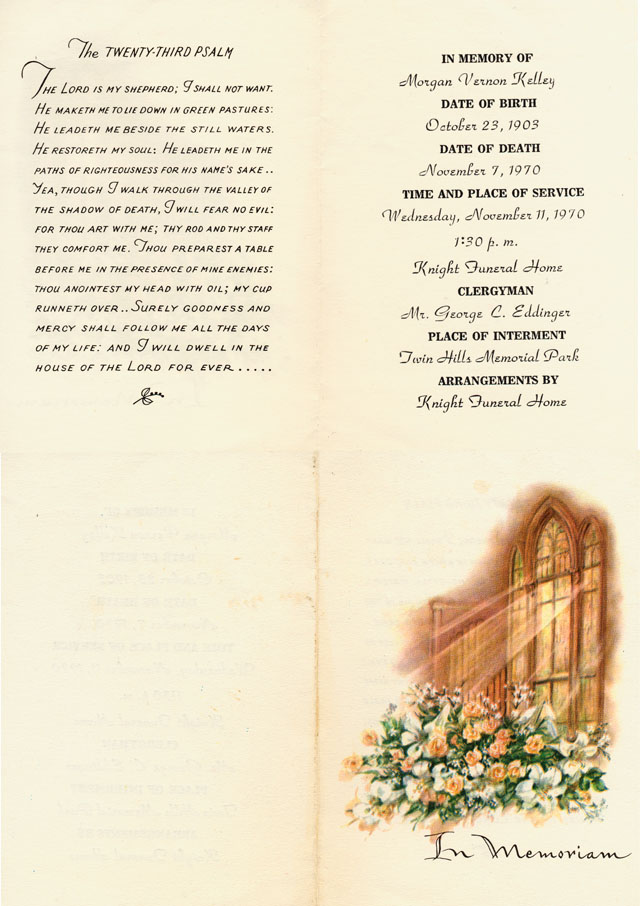 The TWENTY-THIRD PSALM
THE LORD IS MY SHEPHERD; I SHALL NOT WANT.
HE MAKETH ME TO LIE DOWN IN GREEN PASTURES:
HE LEADETH ME BESIDE THE STILL WATERS.
HE RESTORETH MY SOUL: HE LEADETH ME IN THE
PATHS OF RIGHTEOUSNESS FOR HIS NAME'S SAKE..
YEA, THOUGH I WALK THROUGH THE VALLEY OF
THE SHADOW OF DEATH, I WILL FEAR NO EVIL:
FOR THOU ART WITH ME; THY ROD AND THY STAFF
THEY COMFORT ME. THOU PREPAREST A TABLE
BEFORE ME IN THE PRESENCE OF MINE ENEMIES:
THOU ANOINTEST MY HEAD WITH OIL; MY CUP
RUNNETH OVER.. SURELY GOODNESS AND
MERCY SHALL FOLLOW ME ALL THE DAYS
OF MY LIFE: AND I WILL DWELL IN THE
HOUSE OF THE LORD FOR EVER.....
IN MEMORY OF
Morgan Vernon Kelley
DATE OF BIRTH
October 23, 1903
DATE OF DEATH
November 7, 1970
TIME AND PLACE OF SERVICE
Wednesday, November 11, 1970
1:30 p. m.
Knight Funeral Home
CLERGYMAN
Mr. George C. Eddinger
PLACE OF INTERMENT
Twin Hills Memorial Park
ARRANGEMENTS BY
Knight Funeral Home
In Memoriam